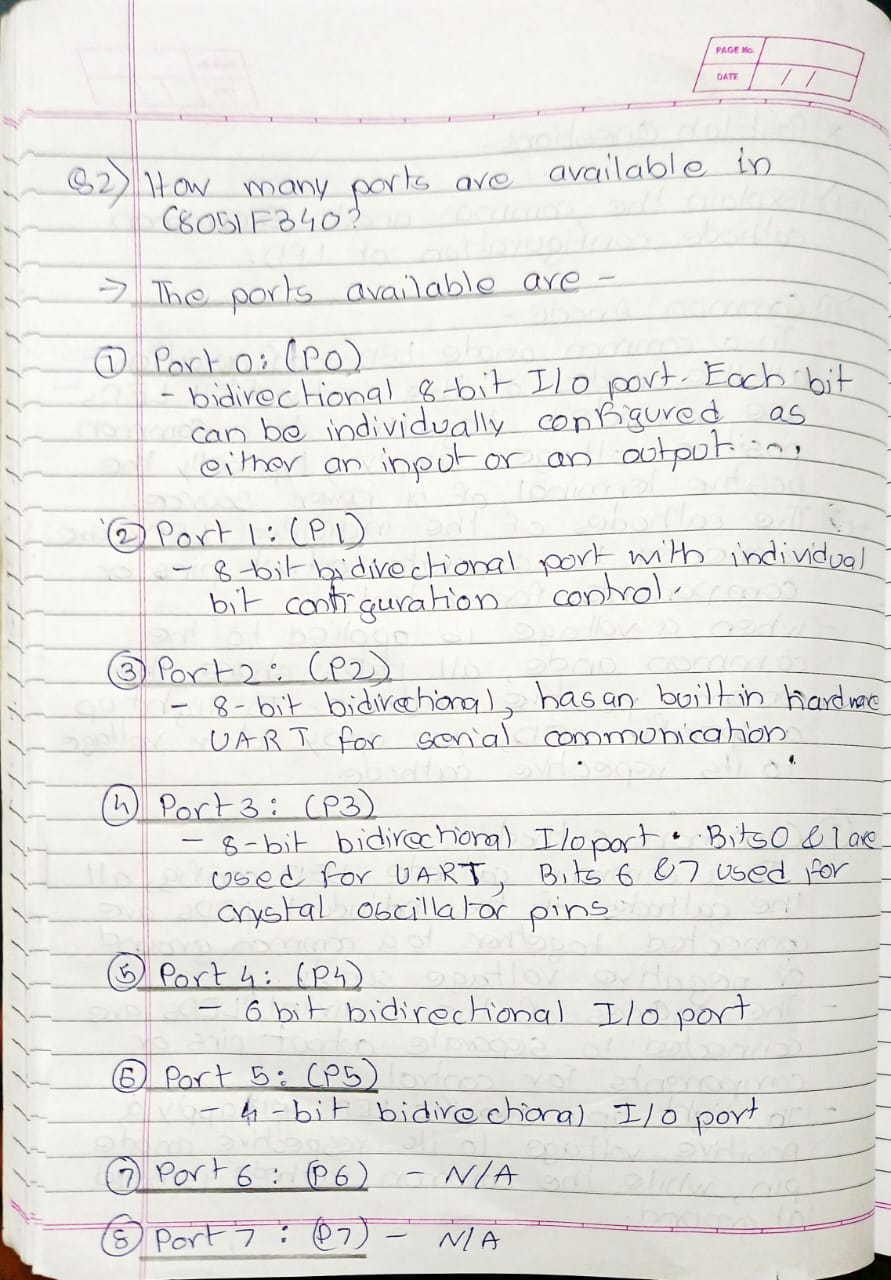 PAGE No.
DATE / /
Q2) How many ports are available in
C8051F340?
→ The ports available are -
① Port 0: (P0)
- bidirectional 8-bit I/o port. Each bit
can be individually configured as
either an input or an output.
② Port 1: (P1)
- 8-bit bidirectional port with individual
bit configuration control.
③ Port 2: (P2)
- 8-bit bidirectional, has an built in hardware
UART for serial communication
④ Port 3: (P3)
- 8-bit bidirectional I/o port. Bits 0 & 1 are
used for UART, Bits 6 & 7 used for
crystal oscillator pins.
⑤ Port 4: (P4)
- 6 bit bidirectional I/o port
⑥ Port 5: (P5)
- 4-bit bidirectional I/o port
⑦ Port 6: (P6) - N/A
⑧ Port 7: (P7) - N/A